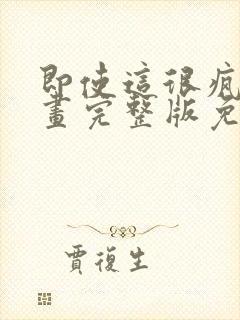 即使這很瘋
畫完整版免
賈復生